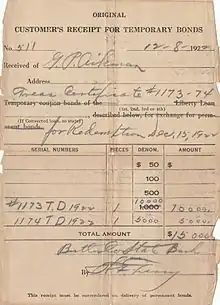 ORIGINAL
CUSTOMER'S RECEIPT FOR TEMPORARY BONDS
No. 511 12-8-1922
Received of G. P. Aikman
Address
Treas Certificate #1173-74
Temporary coupon bonds of the Liberty Loan
(1st, 2nd, 3rd or 4th)
(If Converted loan, so state) described below, for exchange for perma-
nent bonds. for Redemption Dec, 15, 1922
SERIAL NUMBERS PIECES DENOM. AMOUNTS
$ 50 $
100
500
10000
#1173 T D 1922 1 1,000 10000
1174 T D 1922 1 5000 5000
TOTAL AMOUNT $15000
Butler Co State Bank
By
This receipt must be surrendered on delivery of permanent bonds.